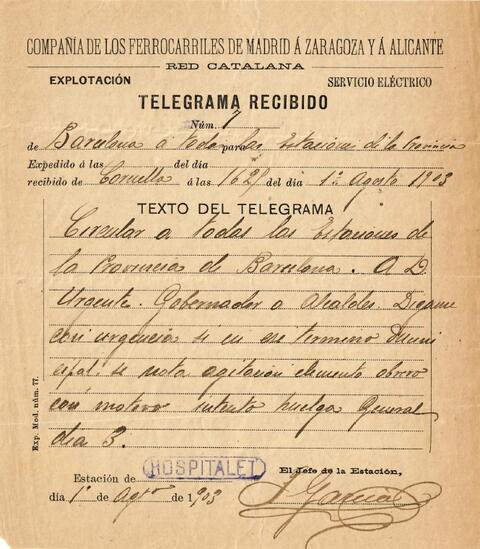 COMPAÑÍA DE LOS FERROCARRILES DE MADRID Á ZARAGOZA Y Á ALICANTE
RED CATALANA
EXPLOTACIÓN SERVICIO ELÉCTRICO
TELEGRAMA RECIBIDO
Núm. 7
de Barcelona á todas para las Estaciones de la Provincia
Expedido á las del día
recibido de Cornella á las 16 28 del día 1º Agosto 1903
TEXTO DEL TELEGRAMA
Circular a todas las Estaciones de
la Provincia de Barcelona. A D.
Urgente. Gobernador a Alcaldes. Digame
con urgencia si en ese termino muni
cipal se nota agitacion elemento obrero
con motivo intento huelga General
dia 3.
Exp. Mod. núm. 77.
Estación de HOSPITALET El Jefe de la Estación,
día 1º de Agto de 1903 Garcia